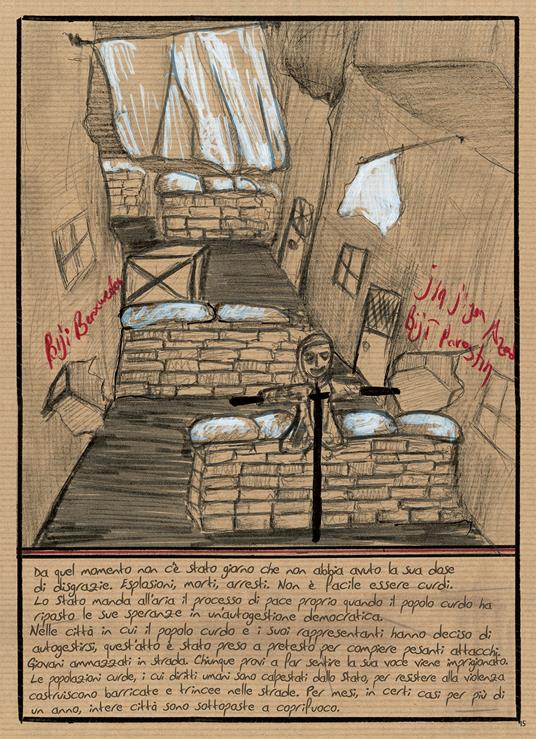 Biji Berxwedan
jin jiyan Azad
Biji Parastin
Da quel momento non c'è stato giorno che non abbia avuto la sua dose
di disgrazie. Esplosioni, morti, arresti. Non è facile essere curdi.
Lo Stato manda all'aria il processo di pace proprio quando il popolo curdo ha
riposto le sue speranze in un'autogestione democratica.
Nelle città in cui il popolo curdo e i suoi rappresentanti hanno deciso di
autogestirsi, quest'atto è stato preso a pretesto per compiere pesanti attacchi.
Giovani ammazzati in strada. Chiunque provi a far sentire la sua voce viene imprigionato.
Le popolazioni curde, i cui diritti umani sono calpestati dallo Stato, per resistere alla violenza
costruiscono barricate e trincee nelle strade. Per mesi, in certi casi per più di
un anno, intere città sono sottoposte a coprifuoco.
15